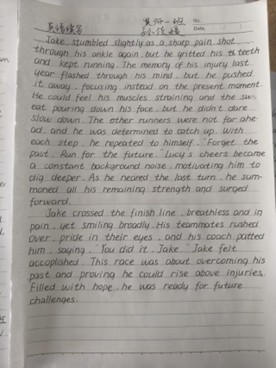 英语续写
No.
Date
Jake stumbled slightly as a sharp pain shot
through his ankle again, but he gritted his teeth
and kept running. The memory of his injury last
year flashed through his mind, but he pushed
it away, focusing instead on the present moment.
He could feel his muscles straining and the sw-
eat pouring down his face, but he didn't dare
slow down. The other runners were not far ahe-
ad, and he was determined to catch up. With
each step, he repeated to himself, "Forget the
past. Run for the future." Lucy's cheers became
a constant background noise, motivating him to
dig deeper. As he neared the last turn, he sum-
moned all his remaining strength and surged
forward.
Jake crossed the finish line, breathless and in
pain, yet smiling broadly. His teammates rushed
over, pride in their eyes, and his coach patted
him, saying, "You did it, Jake." Jake felt
accoplished. This race was about overcoming his
past and proving he could rise above injuries.
Filled with hope, he was ready for future
challenges.